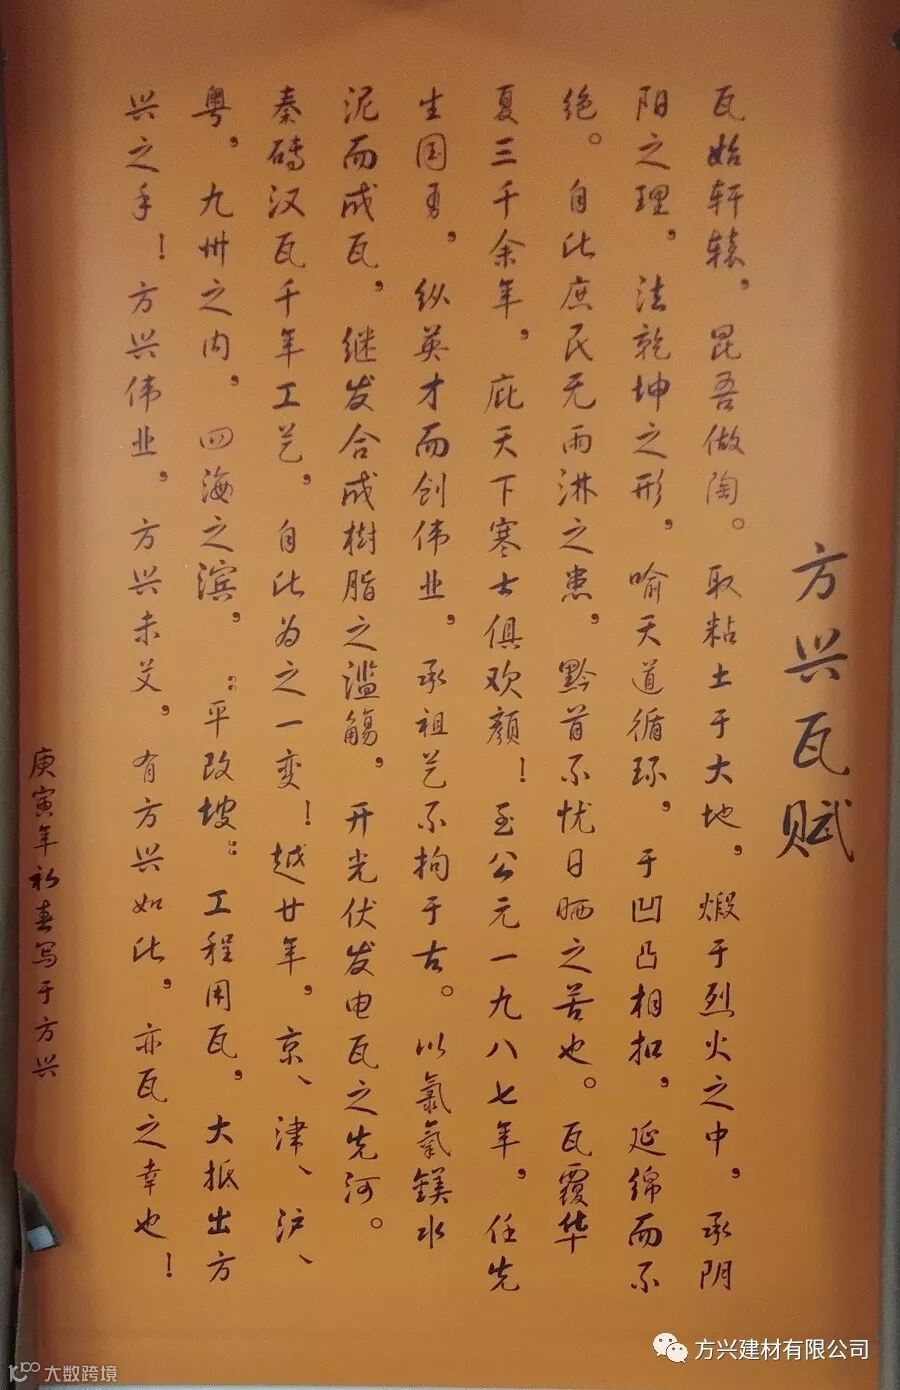 方兴瓦赋
瓦始轩辕，昆吾做陶。取粘土于大地，煅于烈火之中，承阴
阳之理，法乾坤之形，喻天道循环，于凹凸相扣，延绵而不
绝。自此庶民无雨淋之患，黔首不忧日晒之苦也。瓦覆华
夏三千余年，庇天下寒士俱欢颜！至公元一九八七年，任先
生国勇，纵英才而创伟业，承祖艺不拘于古。以氯氧镁水
泥而成瓦，继发合成樹脂之滥觞，开光伏发电瓦之先河。
秦砖汉瓦千年工艺，自此为之一变！越廿年，京、津、沪、
粤，九州之内，四海之滨，：平改坡：工程用瓦，大抵出方
兴之手！方兴伟业，方兴未艾，有方兴如此，亦瓦之幸也！
庚寅年初春写于方兴
方兴建材有限公司
大数跨境